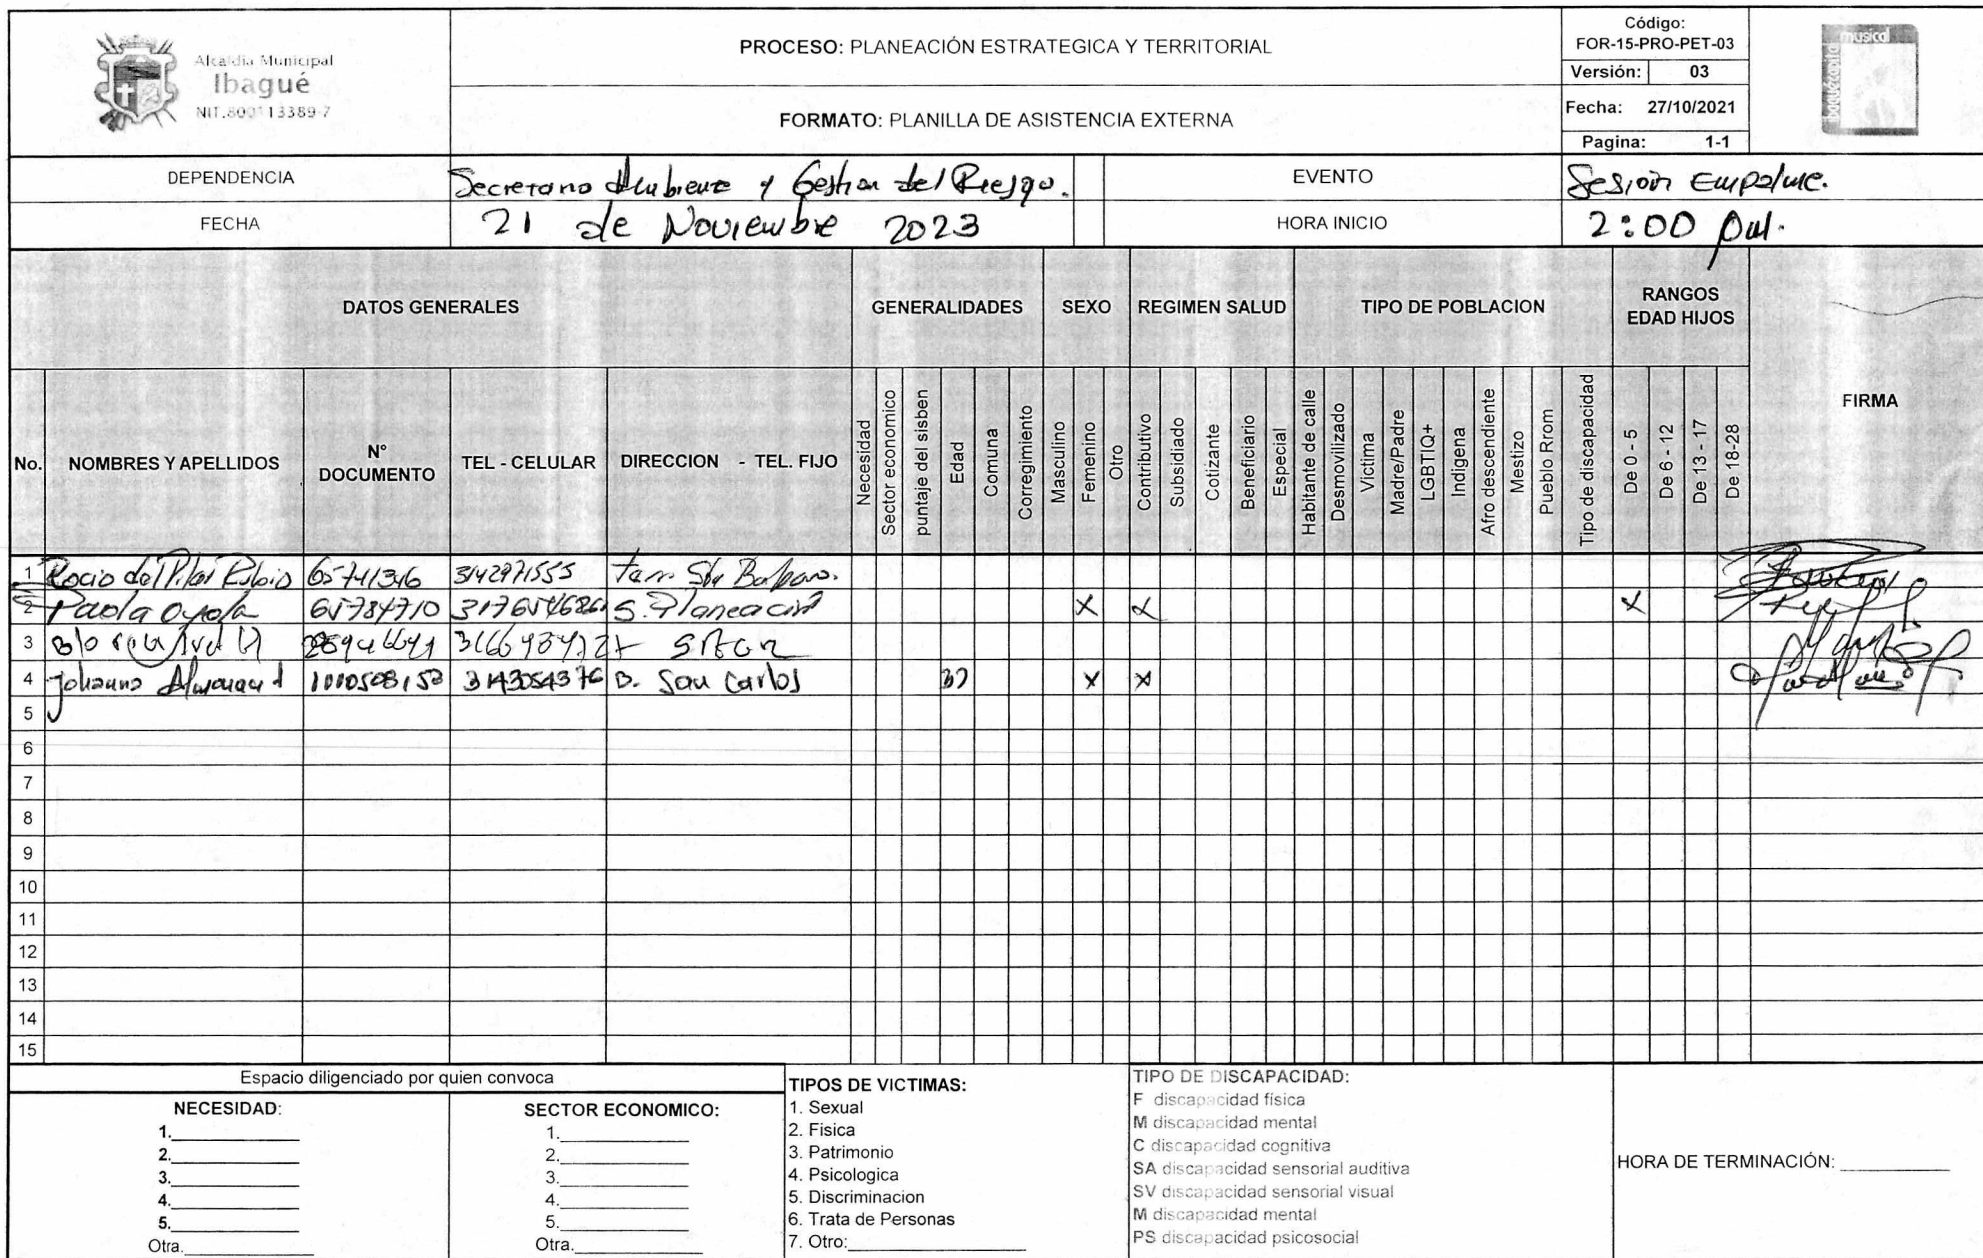 Alcaldía Municipal
Ibagué
NIT.800113389-7
PROCESO: PLANEACIÓN ESTRATEGICA Y TERRITORIAL
FORMATO: PLANILLA DE ASISTENCIA EXTERNA
Código:
FOR-15-PRO-PET-03
Versión: 03
Fecha: 27/10/2021
Pagina: 1-1
musical
DEPENDENCIA
Gestion del Riesgo.
EVENTO
Sesion Empalme.
FECHA
21 de Noviembre 2023
HORA INICIO
2:00 pm.
DATOS GENERALES
GENERALIDADES
SEXO
REGIMEN SALUD
TIPO DE POBLACION
RANGOS
EDAD HIJOS
No.
NOMBRES Y APELLIDOS
N°
DOCUMENTO
TEL - CELULAR
DIRECCION - TEL. FIJO
Necesidad
Sector economico
puntaje del sisben
Edad
Comuna
Corregimiento
Masculino
Femenino
Otro
Contributivo
Subsidiado
Cotizante
Beneficiario
Especial
Habitante de calle
Desmovilizado
Victima
Madre/Padre
LGBTIQ+
Indigena
Afro descendiente
Mestizo
Pueblo Rrom
Tipo de discapacidad
De 0 - 5
De 6 - 12
De 13 - 17
De 18-28
FIRMA
1 Rocio del Pilar Rubio 65741346 3142971555
2 Paola Oyola 65784710 S. Planeación X X X
3
4 Johanna 1110508153 3143054376 B. San Carlos X X
5
6
7
8
9
10
11
12
13
14
15
Espacio diligenciado por quien convoca
NECESIDAD:
1.
2.
3.
4.
5.
Otra.
SECTOR ECONOMICO:
1.
2.
3.
4.
5.
Otra.
TIPOS DE VICTIMAS:
1. Sexual
2. Fisica
3. Patrimonio
4. Psicologica
5. Discriminacion
6. Trata de Personas
7. Otro:
TIPO DE DISCAPACIDAD:
F discapacidad física
M discapacidad mental
C discapacidad cognitiva
SA discapacidad sensorial auditiva
SV discapacidad sensorial visual
M discapacidad mental
PS discapacidad psicosocial
HORA DE TERMINACIÓN: